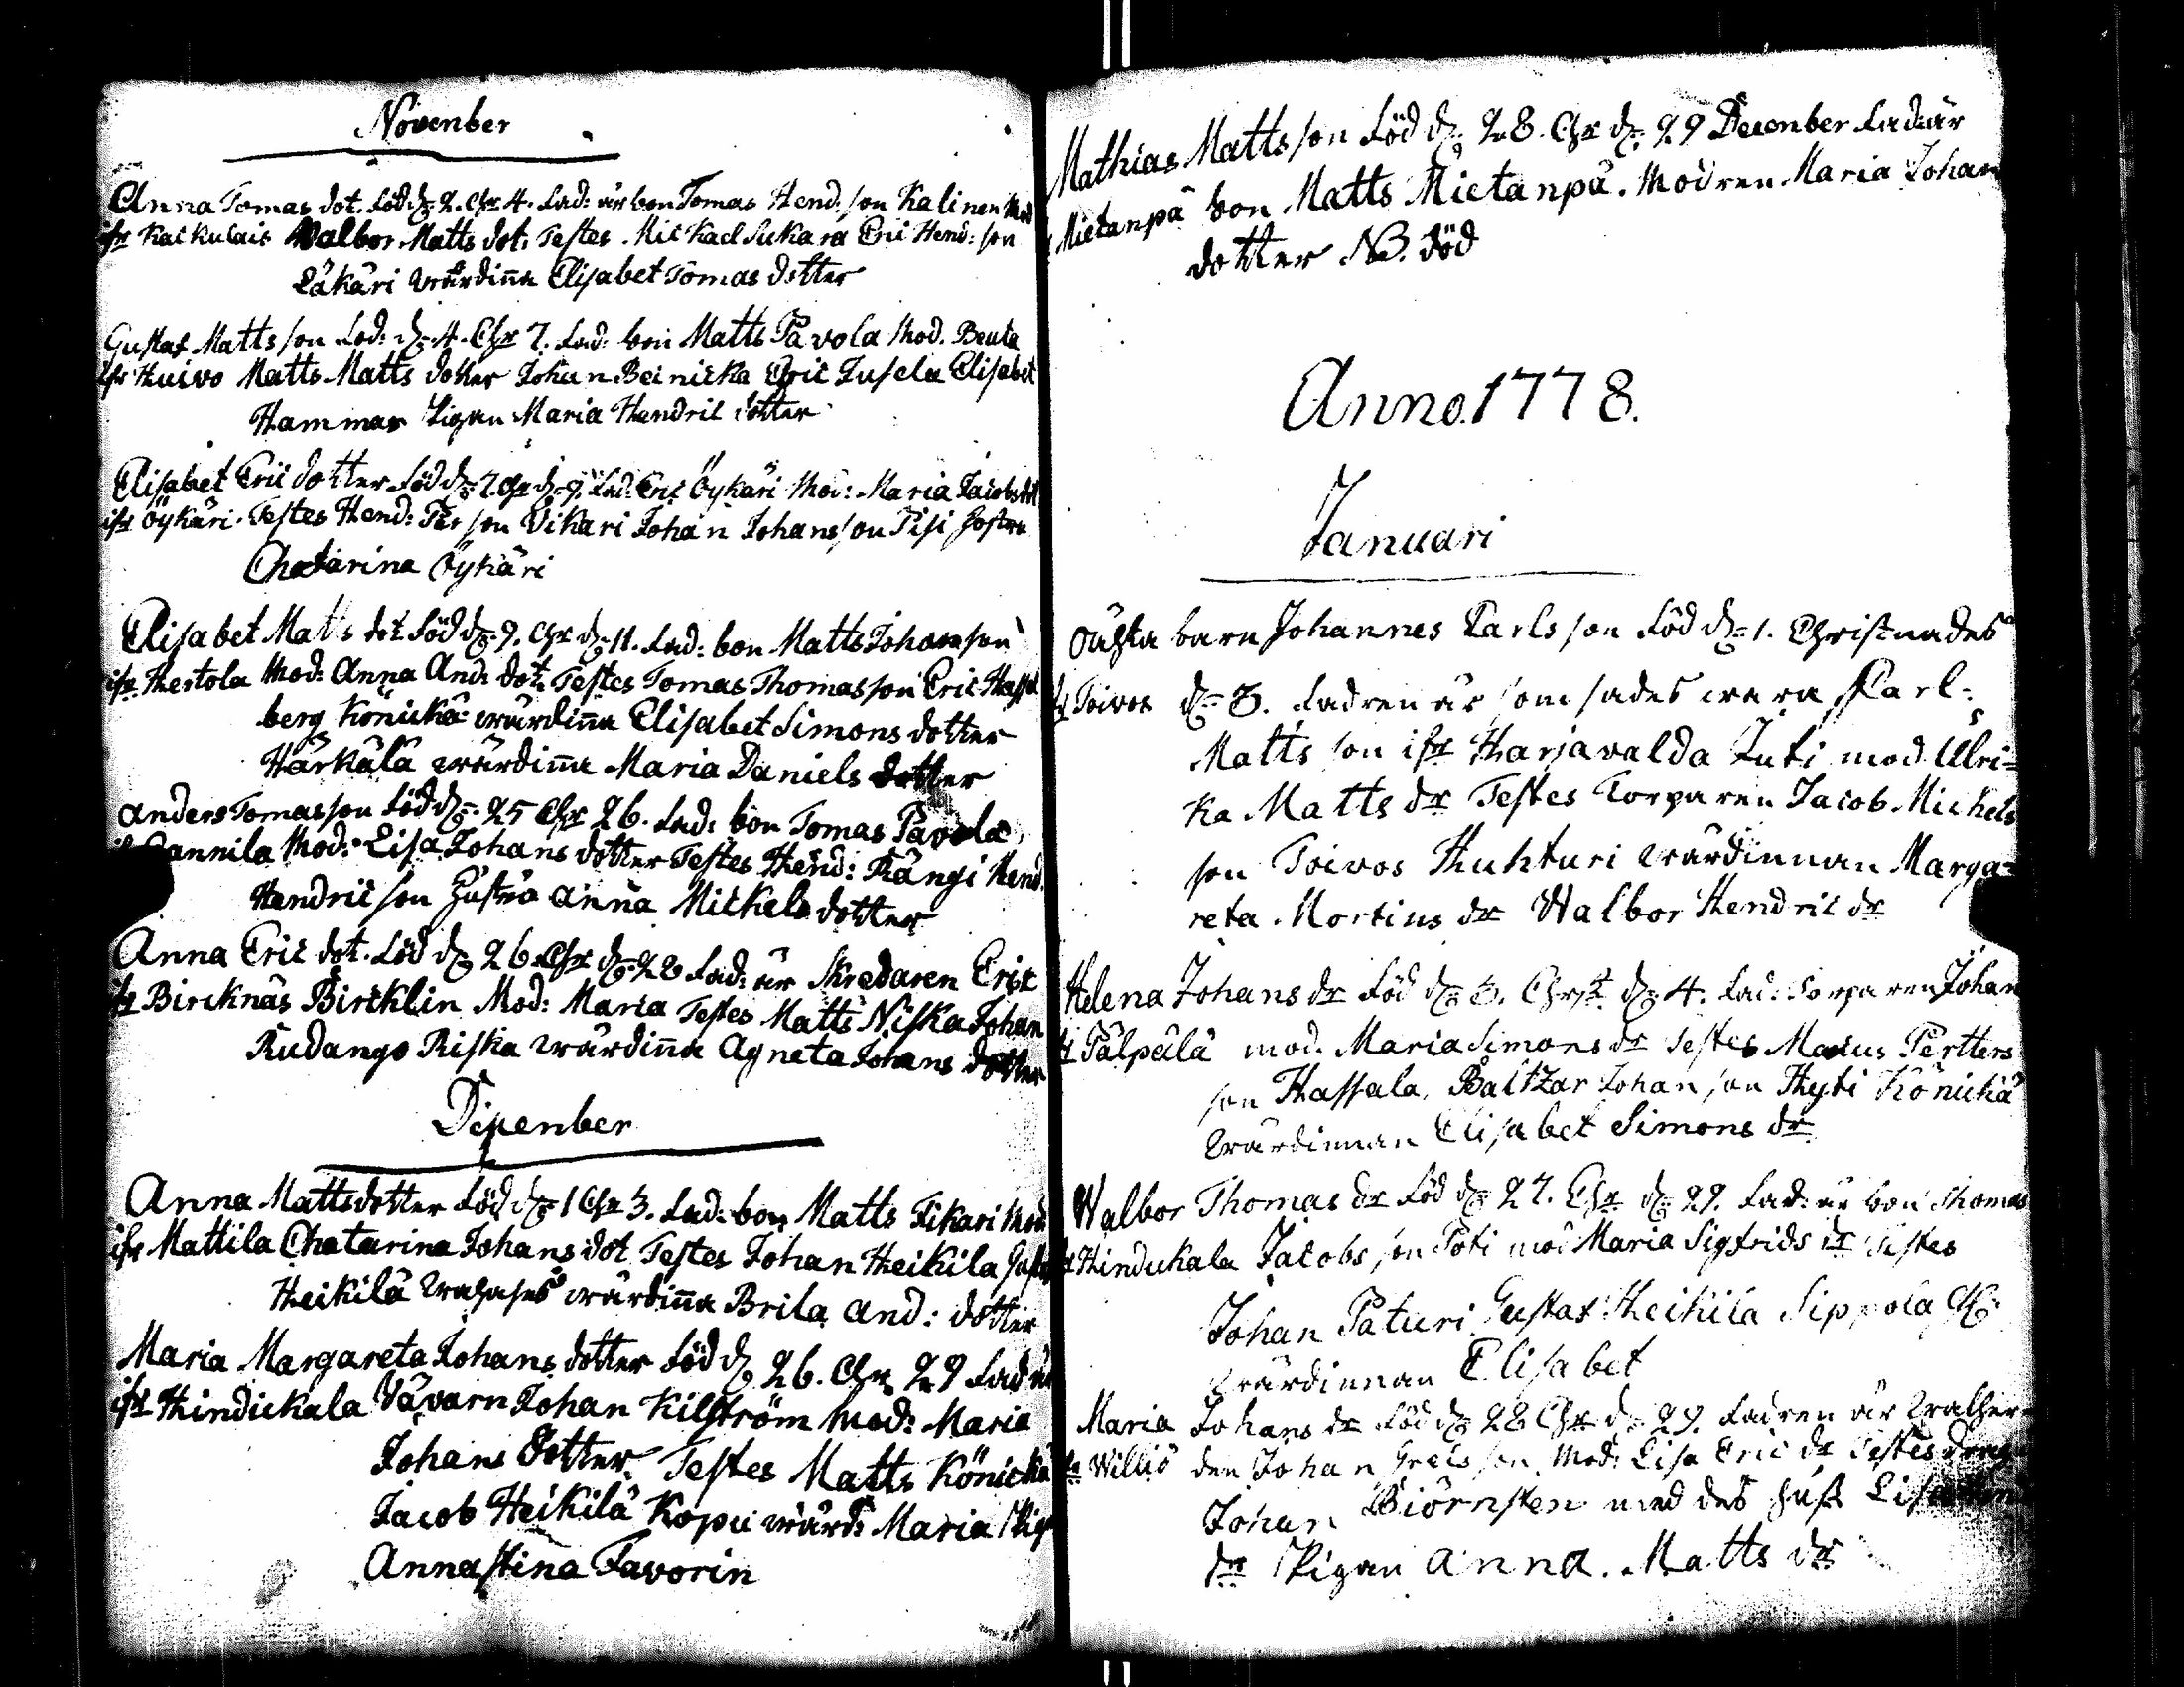 November
Anna Tomas dot. född d. 2. Chr. 4. Fad: är bon Tomas Hend: son Kalinen Mod
ifr Kaikulais Walbor Matts dot: Testes Mickael Sukara Eric Hend: son
Läkäri wärdinna Elisabet Tomas dotter
Gustaf Matts son Föd: d. 4. Chr 7. Fad: bon Matts Pavola Mod. Beata
ifr Huivo Matts Matts dotter Johan Beinicka Eric Jusela Elisabet
Hammar Pigan Maria Hendric dotter
Elisabet Eric dotter född d. 7. Chr d. 9. Fad: Eric Öykäri Mod: Maria Jacobs dot
ifr Öykäri. Testes Hend: Per son Vikari Johan Johans son Pisi hustru
Chatarina Öykäri
Elisabet Matts dot född d. 9. Chr d. 11. Fad: bon Matts Johanson
ifr Hertola Mod: Anna And: dot: Testes Tomas Thomas son Eric Hassel
berg Könickä wärdinna Elisabet Simons dotter
Härkälä wärdinna Maria Daniels dotter
Anders Tomas son född d. 25 Chr 26. Fad: bon Tomas Pavola
Mod: Lisa Johans dotter Testes Hend: Rängi Hend.
Hendric son hustro Anna Mickels dotter
Anna Eric dot. född d. 26. Chr d. 28 Fad: är skredaren Eric
ifr Bircknäs Bircklin Mod: Maria Testes Matts Niska Johan
Rudango Riska wärdinna Agneta Johans dotter
December
Anna Matts dotter född d. 1 Chr 3. Fad: bon Matts Fikari Mod
ifr Mattila Chatarina Johans dot Testes Johan Heikila Gust
Heikilä wärdinna Brita And: dotter
Maria Margareta Johans dotter född d. 26. Chr 29 Fad är
ifr Hindickala Vävarn Johan Kilström Mod: Maria
Johans dotter Testes Matts Könickä
Jacob Heikilä Kopu wärd: Maria Pig
Anna Stina Favorin
Mathias Matts son född d. 28. Chr d. 29 December Fad: är
Mietanpä bon Matts Mietanpä. Modren Maria Johan
dotter NB. död
Anno. 1778.
Januari
Oächta barn Johannes Carls son född d. 1. Christnades
fr Toivos d. 3. Fadren är som sades wara Karl
Matts son ifr Harjavalda Juti mod Ulri=
ka Matts dr Testes Torparen Jacob Mickels
son Toivos Huhturi wärdinnan Marga=
reta Mortins dr Walbor Hendric dr
Helena Johans dr född d. 3. Christ d. 4. Fad: Torparen Johan
fr Pälpälä mod. Maria Simons dr Testes Pertters
son Hassala, Baltzar Johan son Hyti Könickä
wärdinnan Elisabet Simons dr
Walbor Thomas dr född d. 27. Chr d. 29. Fad: är bon Thomas
fr Hindickala Jacobs son Poti mod Maria Sigfrids dr Testes
Johan Paturi Gustaf Heikila Sippola
wärdinnan Elisabet
Maria Johans dr född d. 28 Chr d. 29. Fadren är
fr Willio den Johan Grels son Mod: Lisa Eric dr Testes
Johan Biörnsten med des hust
dr Pigan Anna Matts dr